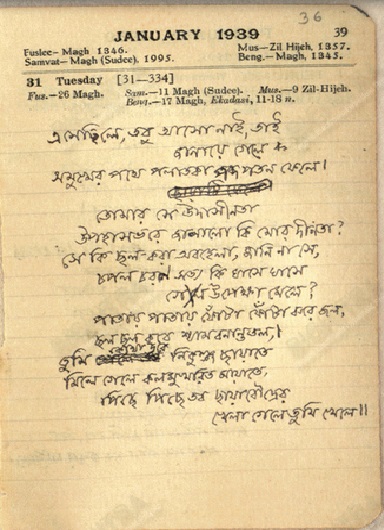 36
JANUARY 1939 39
Fuslee—Magh 1346. Mus—Zil Hijeh, 1357.
Samvat—Magh (Sudee), 1995. Beng.—Magh, 1345.
31 Tuesday [31—334]
Fus.—26 Magh. Sam.—11 Magh (Sudee). Mus.—9 Zil-Hijeh.
Beng.—17 Magh, Ekadasi, 11-18 n.
এসেছিলে, তবু আসো নাই, তাই
জানায়ে গেলে
সমুখের পথে পলাতকা পতন ফেলে।
তোমার সে উদাসীনতা
উপহাসভরে জানালো কি মোর দীনতা?
সে কি ছল করা অবহেলা, জানি না সে,
চপল চরণ সত্য কি ঘাসে ঘাসে
গেল উপেক্ষা মেলে?
পাতায় পাতায় ফোঁটা ফোঁটা ঝরে জল,
ছলছল করে শ্যাম বনান্ততল।
তুমি নিকুঞ্জ ছায়াতে
মিলে গেলে কলমুখরিত মায়াতে,
পিছে পিছে তব ছায়ারৌদ্রের
খেলা গেলে তুমি খেলে॥